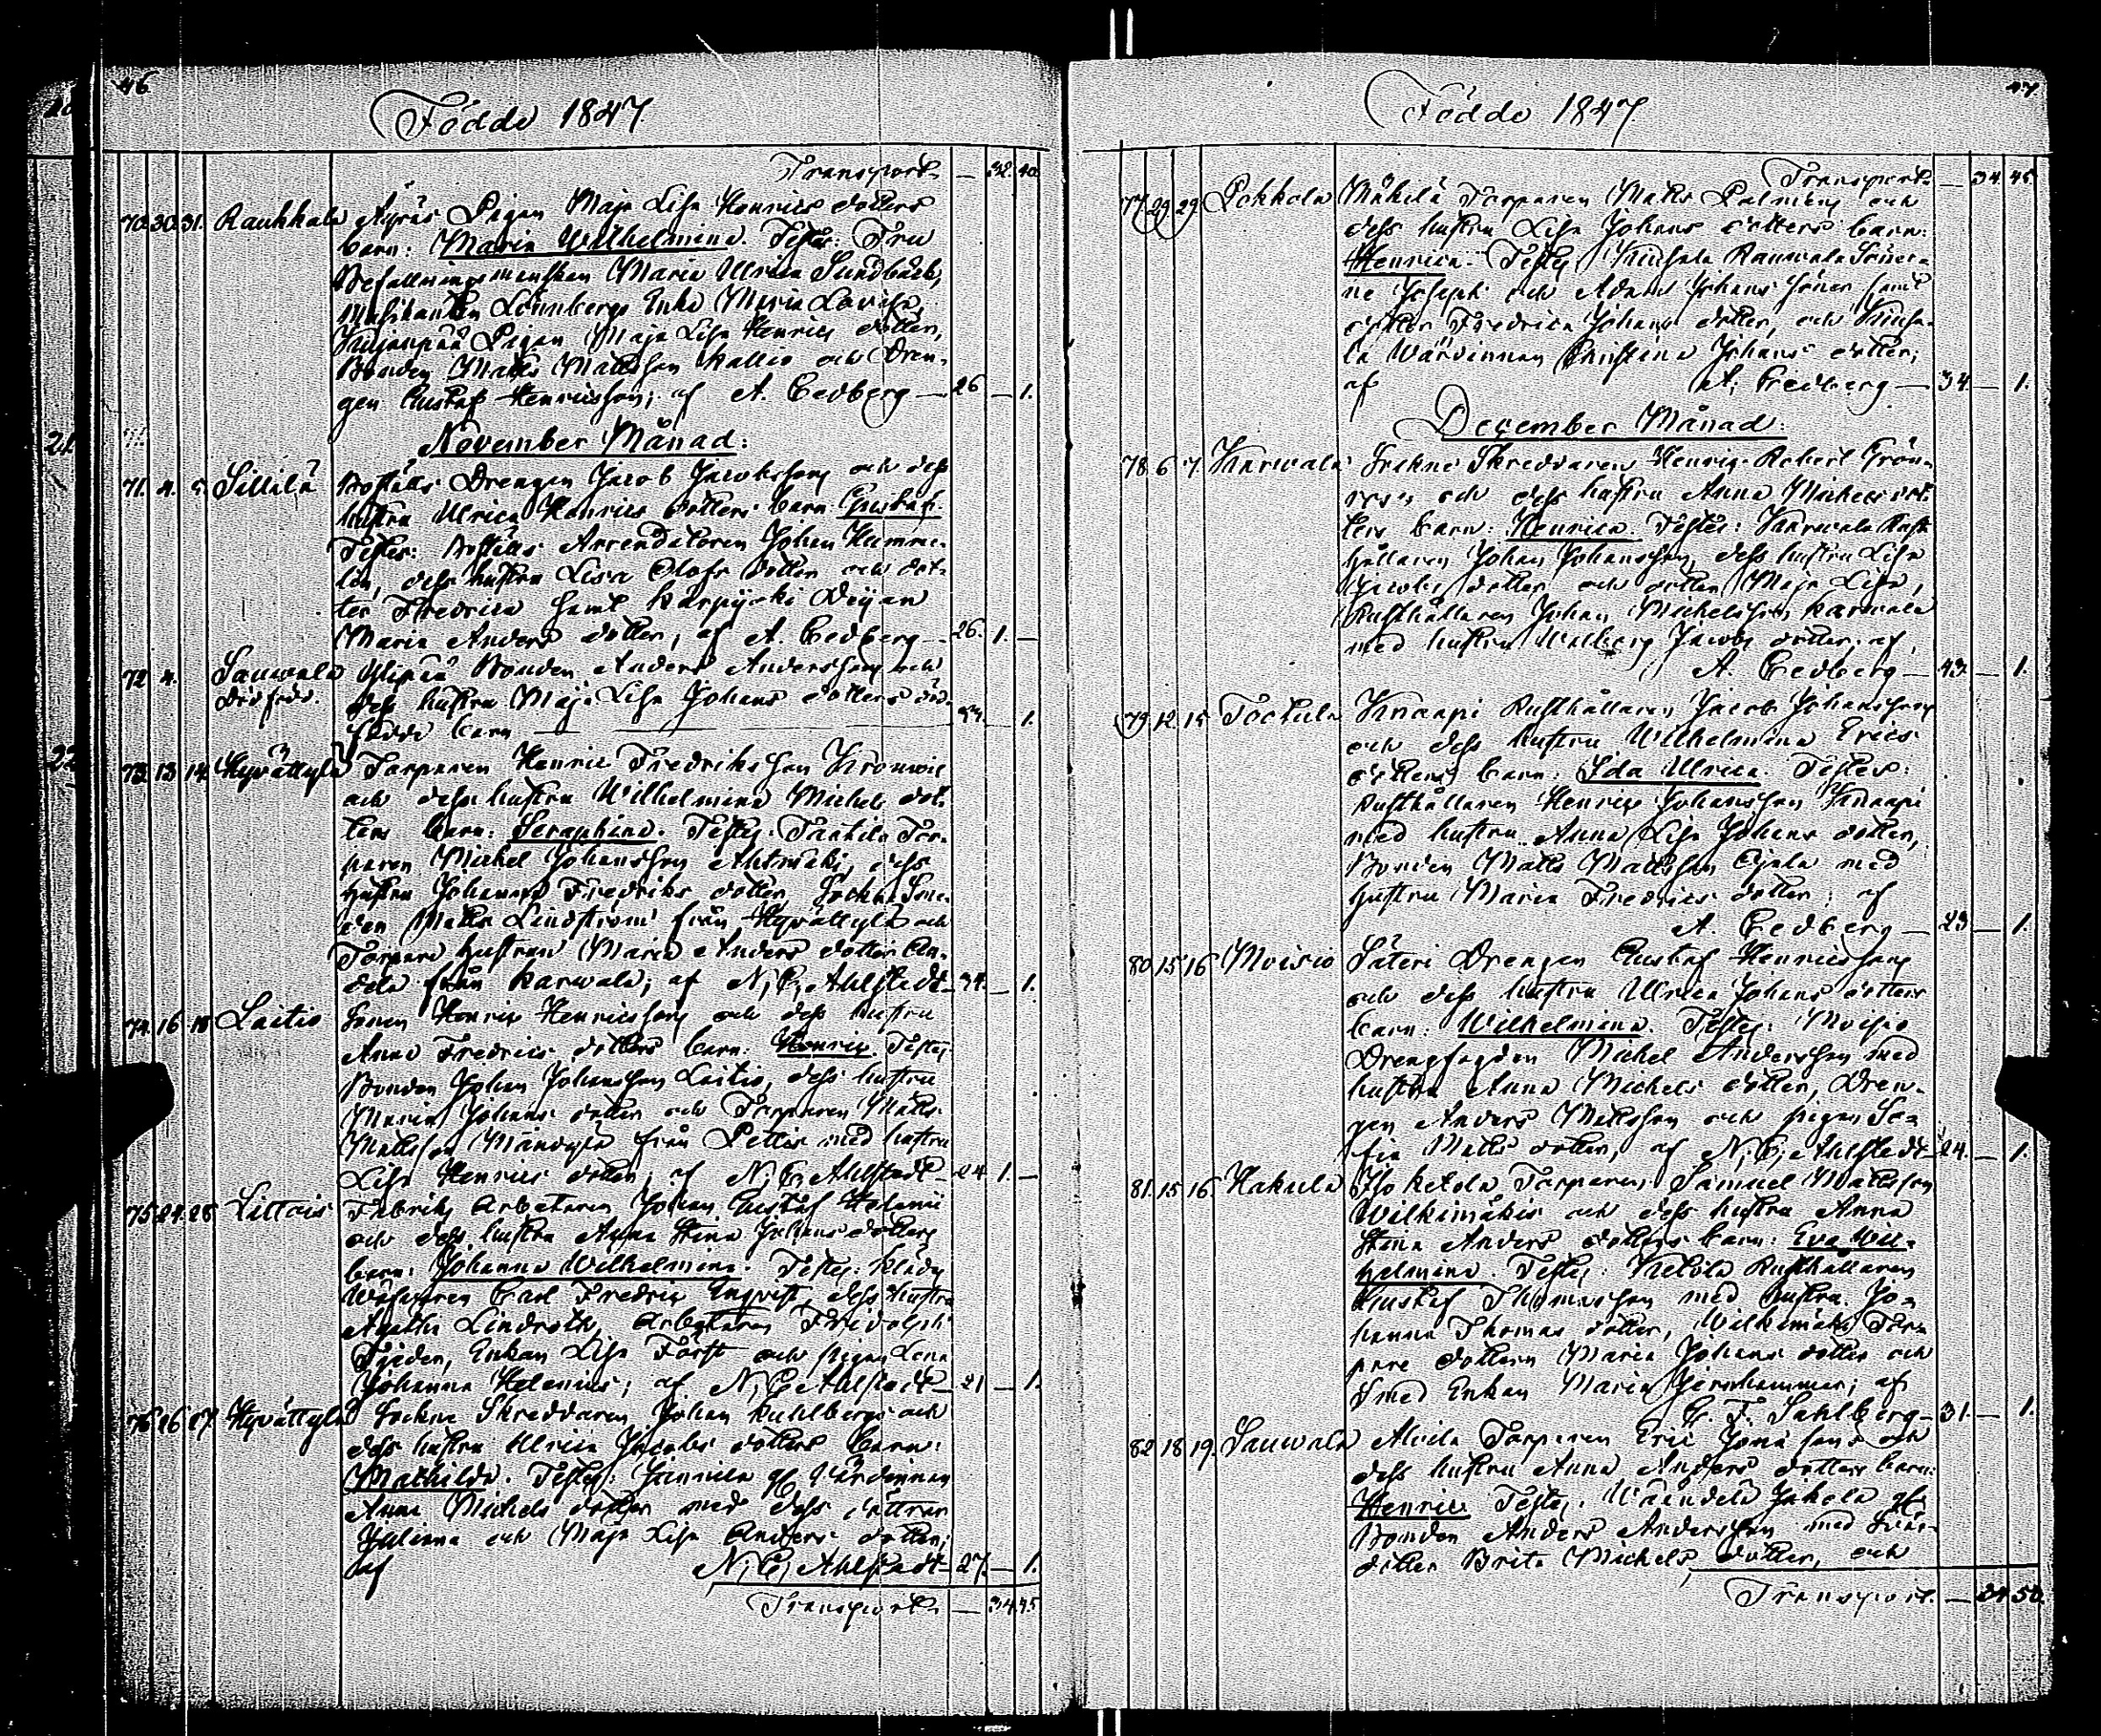 46.
Födde 1847
Transport — 32. 40.
70. 30. 31. Raukkala Äyräs Pigan Maja Lisa Henrics dotters
barn: Maria Wilhelmina. Testes: Fru
Befallningsmanskan Maria Ulrica Sundbäck,
Musikanten Lönnbergs Enka Maria Lovisa,
Pigan Maja Lisa Henrics dotter,
Bonden Matts Mattsson Kallio och Dren-
gen Gustaf Henricsson; af A. Cedberg — 26 — 1.
November Månad:
71. 4. 5. Sillilä Boställs Drengen Jacob Jacobsson och dess
hustru Ulrica Henrics dotters barn Gustaf.
Testes: Boställs Arrendatoren Johan Humme-
lin, dess hustru Lisa Olofs dotter och dot-
ter Fredrica samt Karpijoki Pigan
Maria Anders dotter, af A. Cedberg — 26. 1. —
72. 4. Sauwala Ylipää Bonden Anders Andersson och
Död född. dess hustru Maja Lisa Johans dotters död-
födde barn — 1.
73. 13. 14. Hyvättylä Torparen Henric Fredriksson Kronwik
och dess hustru Wilhelmina Michels dot-
ters barn: Seraphina. Testes: Taatila Tor-
paren Michel Johansson Ahtmäki, dess
hustru Johanna Fredriks dotter, Sockne Sme-
den Matts Lindström från Hyvättylä och
Torpare hustrun Maria Anders dotter
från Karwala; af N. C. Ahlstedt — 34. — 1.
74. 16. 18. Laitis Sonen Henric Henricsson och dess hustru
Anna Fredrics dotters barn: Henric. Testes:
Bonden Johan Johansson Laitis, dess hustru
Maria Johans dotter och Torparen Matts
Mattsson från Pettis med hustru
Lisa Henrics dotter; af N. C. Ahlstedt — 24. 1. —
75. 24. 28. Littois Fabriks Arbetaren Johan Gustaf Helenii
och dess hustru Anna Stina Johans dotters
barn: Johanna Wilhelmina. Testes: Klädes
Wäfvaren Carl Fredric Enqvist, dess hustru
Agatha Lindroth, Arbetaren Fridolph
Enkan Lisa Forss och pigan Lena
Johanna Helenius; af N. C. Ahlstedt — 21 — 1.
76. 26. 27. Hyvättylä Sockne Skreddaren Johan Kuhlbergs och
dess hustru Ulrica Jacobs dotters barn:
Mathilda. Testes: Värdinnan
Anna Michels dotter med dess döttrar
Juliana och Maja Lisa Anders dotter;
af N. C. Ahlstedt — 27. — 1.
Transport — 34. 45.
47.
Födde 1847
Transport — 34. 45.
77. 29. 29. Pokkola Mäkilä Torparen Matts Palmens och
dess hustru Lisa Johans dotters barn:
Henrica. Testes: Kinsala Rauwala Söner-
ne Joseph och Adam Johans söner samt
dotter Fredrica Johans dotter, och Kinsa-
la Wärdinnan Christina Johans dotter;
af A. Cedberg — 34. — 1.
December Månad:
78. 6. 7. Karwala Sockne Skreddaren Henric Robert Grön-
roos och dess hustru Anna Michels dot-
ters barn: Henrica. Testes: Karwala Rust-
hållaren Johan Johansson, dess hustru Lisa
Jacobs dotter och dotter Maja Lisa,
Rusthållaren Johan Michelsson Karwala
med hustru Walborg Jacobs dotter; af
A. Cedberg — 43. — 1.
79. 12. 15. Tortula Knaapi Rusthållaren Jacob Johansson
och dess hustru Wilhelmina Erics
dotters barn: Ida Ulrica. Testes:
Rusthållaren Henric Johansson Knaapi
med hustru Anna Lisa Johans dotter,
Bonden Matts Mattsson Ojala med
hustru Maria Fredrics dotter; af
A. Cedberg — 23 — 1.
80. 15. 16. Moisio Säteri Drengen Gustaf Henricsson
och dess hustru Ulrica Johans dotters
barn: Wilhelmina. Testes: Moisio
Drengfogden Michel Andersson med
hustru Anna Michels dotter, Dren-
gen Anders Mattsson och pigan So-
fia Matts dotter, af N. C. Ahlstedt — 24. — 1.
81. 15. 16. Hakula Iso Ketola Torparen Samuel Mattsson
Wilkimäkis och dess hustru Anna
Stina Anders dotters barn: Eva Wil-
helmina. Testes: Ketola Rusthållaren
Gustaf Thomasson med hustru Jo-
hanna Thomas dotter, Wilkimäki Tor-
pare dottern Maria Johans dotter och
Smed Enkan Maria Jernhammar; af
G. F. Sahlberg — 31. — 1.
82. 18. 19. Sauwala Alvila Torparen Eric Jonassons och
dess hustru Anna Anders dotters barn:
Henric. Testes: Jakola
Bonden Anders Andersson med
dotter Brita Michels dotter, och
Transport. — 34. 50.